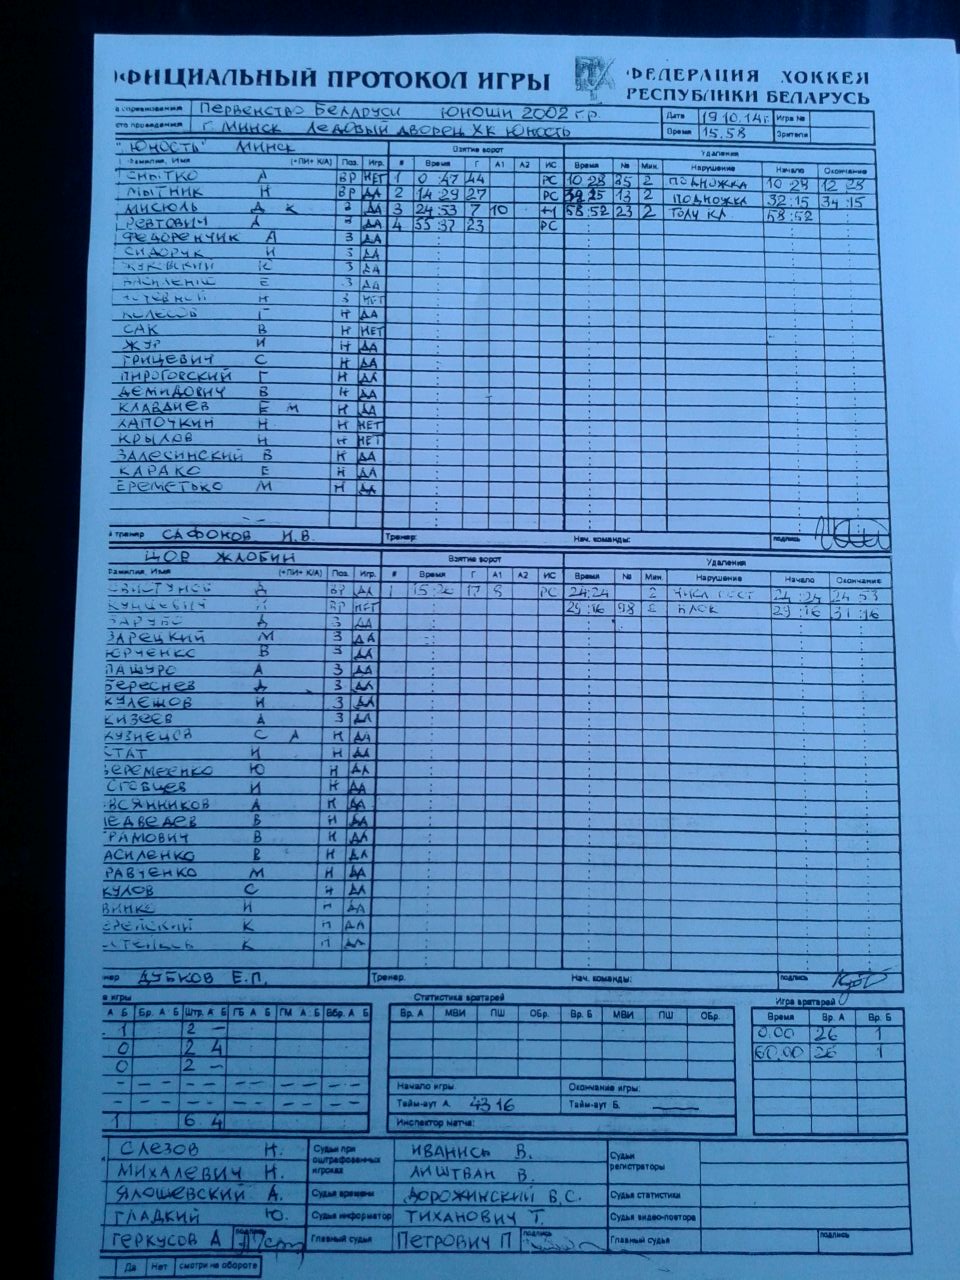 ФИЦИАЛЬНЫЙ ПРОТОКОЛ ИГРЫ ФЕДЕРАЦИЯ ХОККЕЯ
РЕСПУБЛИКИ БЕЛАРУСЬ
Первенство Беларуси юноши 2002 г.р. Дата 19.10.14г. Игра №
г. Минск Ледовый дворец ХК Юность Время 15.58 Зрители
"Юность" Минск Взятие ворот Удаления
Фамилия, Имя (+ПИ+ К/А) Поз. Игр. # Время Г А1 А2 ИС Время № Мин. Нарушение Начало Окончание
СНЫТКО А ВР НЕТ 1 0:47 44 РС 10:28 35 2 ПОДНОЖКА 10:28 12:28
МЫТНИК Н ВР ДА 2 14:29 27 РС 13 2 ПОДНОЖКА 32:15 34:15
МИСЮЛЬ Д К З ДА 3 24:53 7 10 +1 58:52 23 2 58:52
РЕВТОВИЧ А З ДА 4 55:37 23 РС
ФЕДОРЕНЧИК А З ДА
СИДОРУК И З ДА
ЖУКОВСКИЙ К З ДА
ВАСИЛЕНКО Е З ДА
Н З НЕТ
КОЛЕСОВ Г Н ДА
САК В Н НЕТ
ЖУР И Н ДА
ГРИЦЕВИЧ С Н ДА
ПИРОГОВСКИЙ Г Н ДА
ДЕМИДОВИЧ В Н ДА
КЛАВДИЕВ Е М Н ДА
ЛАПОЧКИН Н Н НЕТ
КРЫЛОВ Н Н НЕТ
ЗАЛЕСИНСКИЙ В Н ДА
КАРАКО Е Н ДА
ЕРЕМЕТЬКО М Н ДА
тренер САФОНОВ И.В. Тренер: Нач. команды: подпись
ЦОР ЖЛОБИН Взятие ворот Удаления
Фамилия, Имя (+ПИ+ К/А) Поз. Игр. # Время Г А1 А2 ИС Время № Мин. Нарушение Начало Окончание
СВИСТУНОВ Д ВР ДА 1 15:26 17 9 РС 24:24 2 ЧИСЛ СОСТ 24:24 24:53
КУНЦЕВИЧ ВР НЕТ 29:16 98 2 БЛОК 29:16 31:16
ЗАРУБО Д З ДА
ЗАРЕЦКИЙ М З ДА
ЮРЧЕНКО В З ДА
ПАШУРО А З ДА
БЕРЕСНЕВ Д З ДА
КУЛЕШОВ И З ДА
КИЗЕЕВ А З ДА
КУЗНЕЦОВ С А Н ДА
СТАТ И Н ДА
ВЕРЕМЕЕНКО Ю Н ДА
СГОВЦЕВ И Н ДА
ВСЯННИКОВ А Н ДА
МЕДВЕДЕВ В Н ДА
РАМОВИЧ В Н ДА
АСИЛЕНКО В Н ДА
РАВЧЕНКО М Н ДА
КУЛОВ С Н ДА
ВИНКО И Н ДА
К Н ДА
К Н ДА
нер ДУБКОВ Е.П. Тренер: Нач. команды: подпись
игры Статистика вратарей Игра вратарей
А Б Бр. А Б Штр. А Б ГБ А Б ГМ А Б Вбр. А Б Вр. А МВИ ПШ ОБр. Вр. Б МВИ ПШ ОБр. Время Вр. А Вр. Б
1 2 – 0.00 26 1
0 2 4 60.00 26 1
0 2 –
Начало игры: Окончание игры:
Тайм-аут А. 43 16 Тайм-аут Б.
1 6 4 Инспектор матча:
СЛЕЗОВ Н. Судьи при оштрафованных игроках ИВАНИСЬ В. Судьи регистраторы
МИХАЛЕВИЧ Н. ЛИШТВАН В.
ЯЛОШЕВСКИЙ А. Судья времени ДОРОЖИНСКИЙ В.С. Судья статистики
ГЛАДКИЙ Ю. Судья информатор ТИХАНОВИЧ Т. Судья видео-повтора
ГЕРКУСОВ А подпись Главный судья ПЕТРОВИЧ П подпись Главный судья подпись
Да Нет смотри на обороте